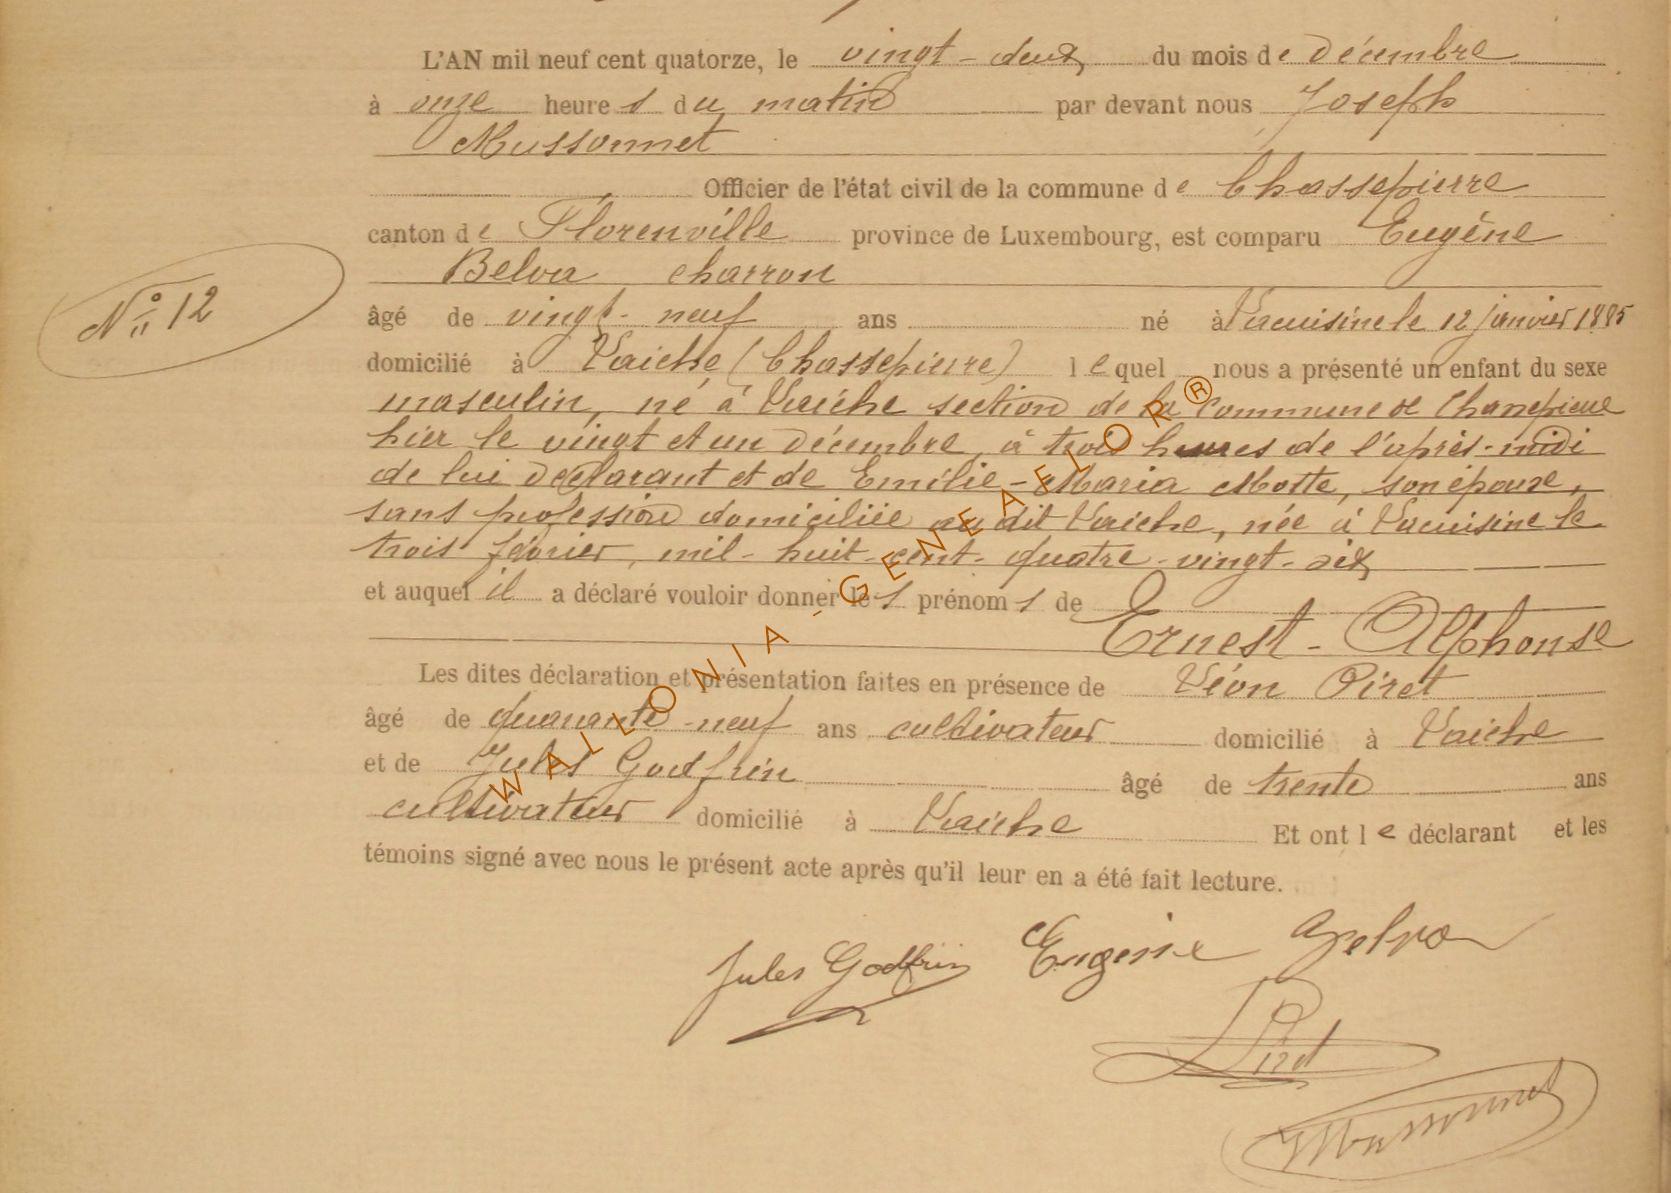 L'AN mil neuf cent quatorze, le vingt-deux du mois de décembre
à onze heures du matin par devant nous Joseph
Mussonnet
Officier de l'état civil de la commune de Chassepierre
canton de Florenville province de Luxembourg, est comparu Eugène
Belva charron
Nº 12
âgé de vingt-neuf ans né à Lacuisine le 12 janvier 1885
domicilié à Laiche (Chassepierre) lequel nous a présenté un enfant du sexe
masculin, né à Laiche section de la commune de Chassepierre
hier le vingt et un décembre, à trois heures de l'après-midi
de lui déclarant et de Emilie-Maria Motte, son épouse,
sans profession domiciliée au dit Laiche, née à Lacuisine le
trois février, mil-huit-cent-quatre-vingt-six
et auquel il a déclaré vouloir donner les prénoms de
Ernest-Alphonse
Les dites déclaration et présentation faites en présence de Léon Piret
âgé de quarante-neuf ans cultivateur domicilié à Laiche
et de Jules Godfrin âgé de trente ans
cultivateur domicilié à Laiche Et ont le déclarant et les
témoins signé avec nous le présent acte après qu'il leur en a été fait lecture.
Jules Godfrin Eugène Belva
L Piret
Mussonnet
WALLONIA-GENEAFLOR®